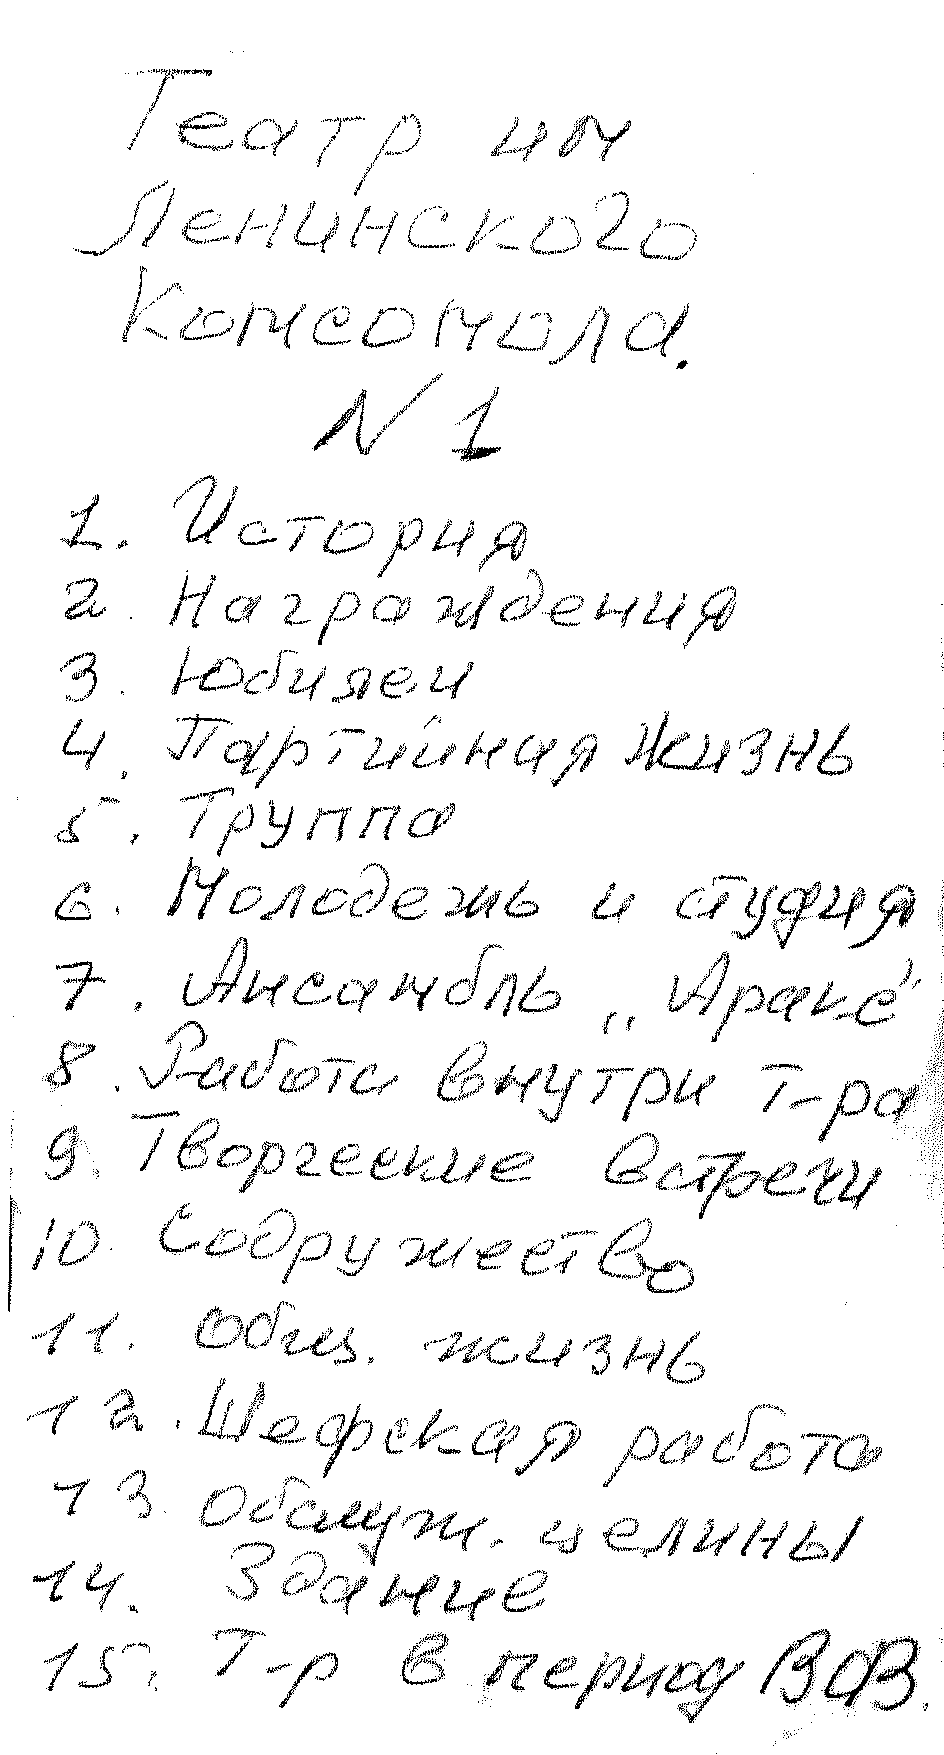 Театр им
Ленинского
Комсомола.
N 1
1. История
2. Награждения
3. Юбилеи
4. Партийная жизнь
5. Труппа
6. Молодежь и студия
7. Ансамбль „Аракс“
8. Работа внутри т-ра
9. Творческие встречи
10. Содружество
11. Общ. жизнь
12. Шефская работа
13. Обслуж. целины
14. Здание
15. Т-р в период ВОВ.